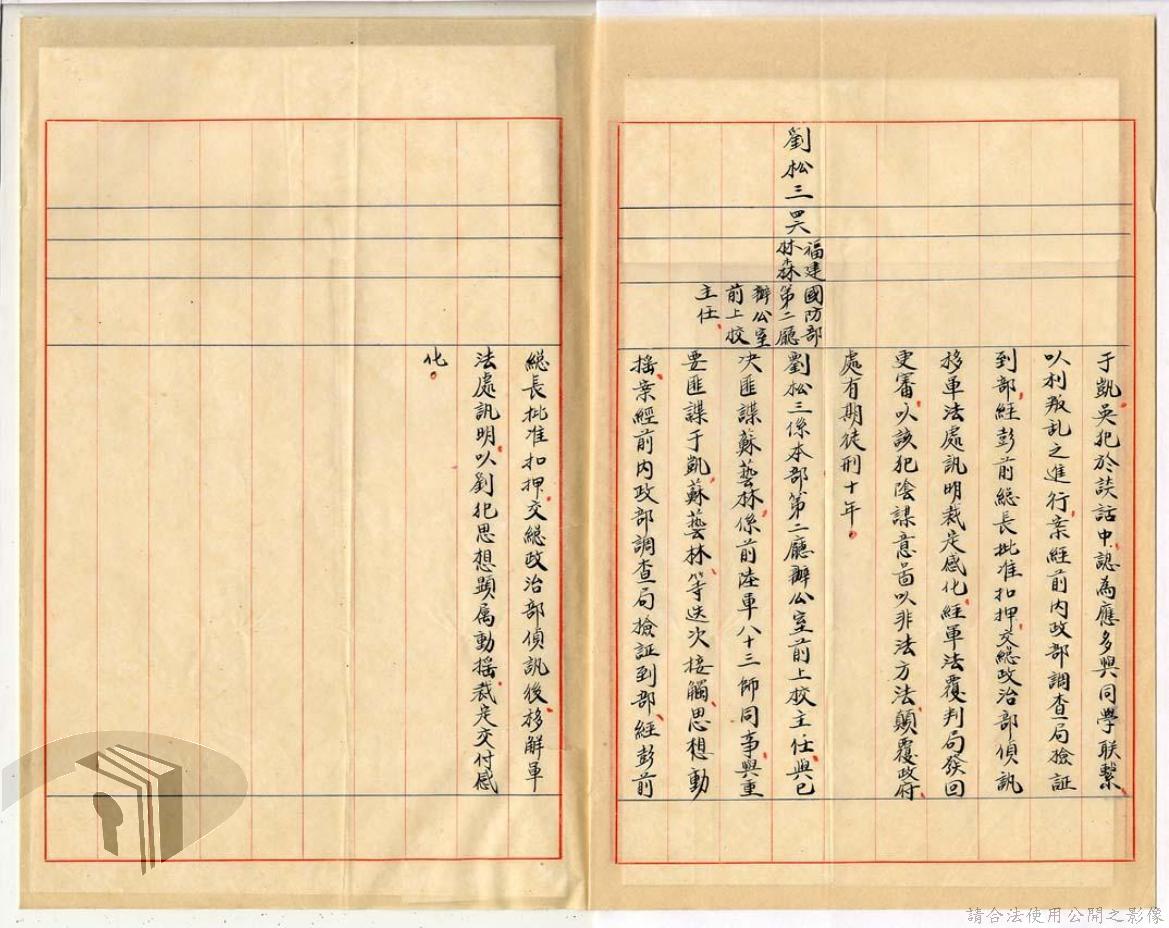 于凱吳犯於談話中認為應多與同學联繫
以利叛乱之進行案經前内政部調查局檢証
到部經彭前総長批准扣押交総政治部偵訊
移軍法處訊明裁定感化經軍法覆判局發回
更審以該犯陰謀意啚以非法方法顛覆政府
處有期徒刑十年。
劉松三
福建
林森
國防部
第二廳
辦公室
前上校
主任
劉松三係本部第二廳辦公室前上校主任與已
决匪諜蘇藝林係前陸軍八十三師同事與重
要匪諜于凱蘇藝林等迭次接觸思想動
搖案經前内政部調查局檢証到部經彭前
総長批准扣押交総政治部偵訊後移解軍
法處訊明以劉犯思想顕属動搖裁定交付感
化。
請合法使用公開之影像